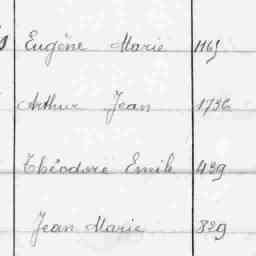 Eugène Marie 1165
Arthur Jean 1736
Théodore Emile 439
Jean Marie 829